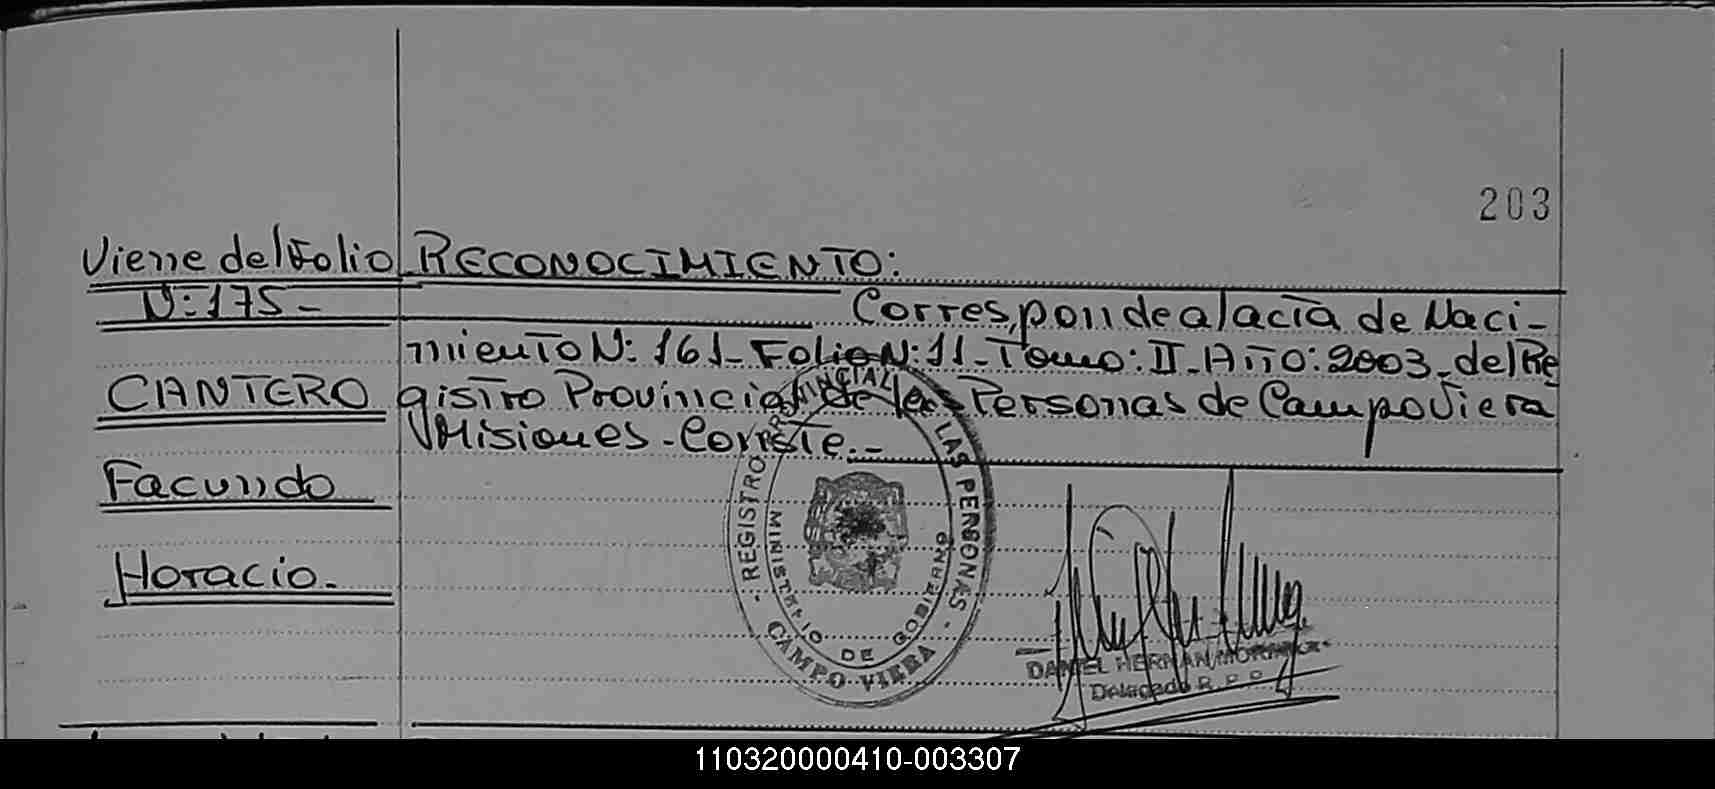 203
Viene del Folio RECONOCIMIENTO:
N: 175 - Corresponde a l acta de Naci-
miento N: 161 - Folio N: 11 - Tomo: II - Año: 2003 - del Re
CANTERO gistro Provincial de las Personas de Campo Viera
Misiones - Conste. -
Facundo
Horacio.
REGISTRO PROVINCIAL DE LAS PERSONAS
MINISTERIO DE GOBIERNO
CAMPO VIERA
DANIEL HERNAN
Delegado R. P. P.
110320000410-003307